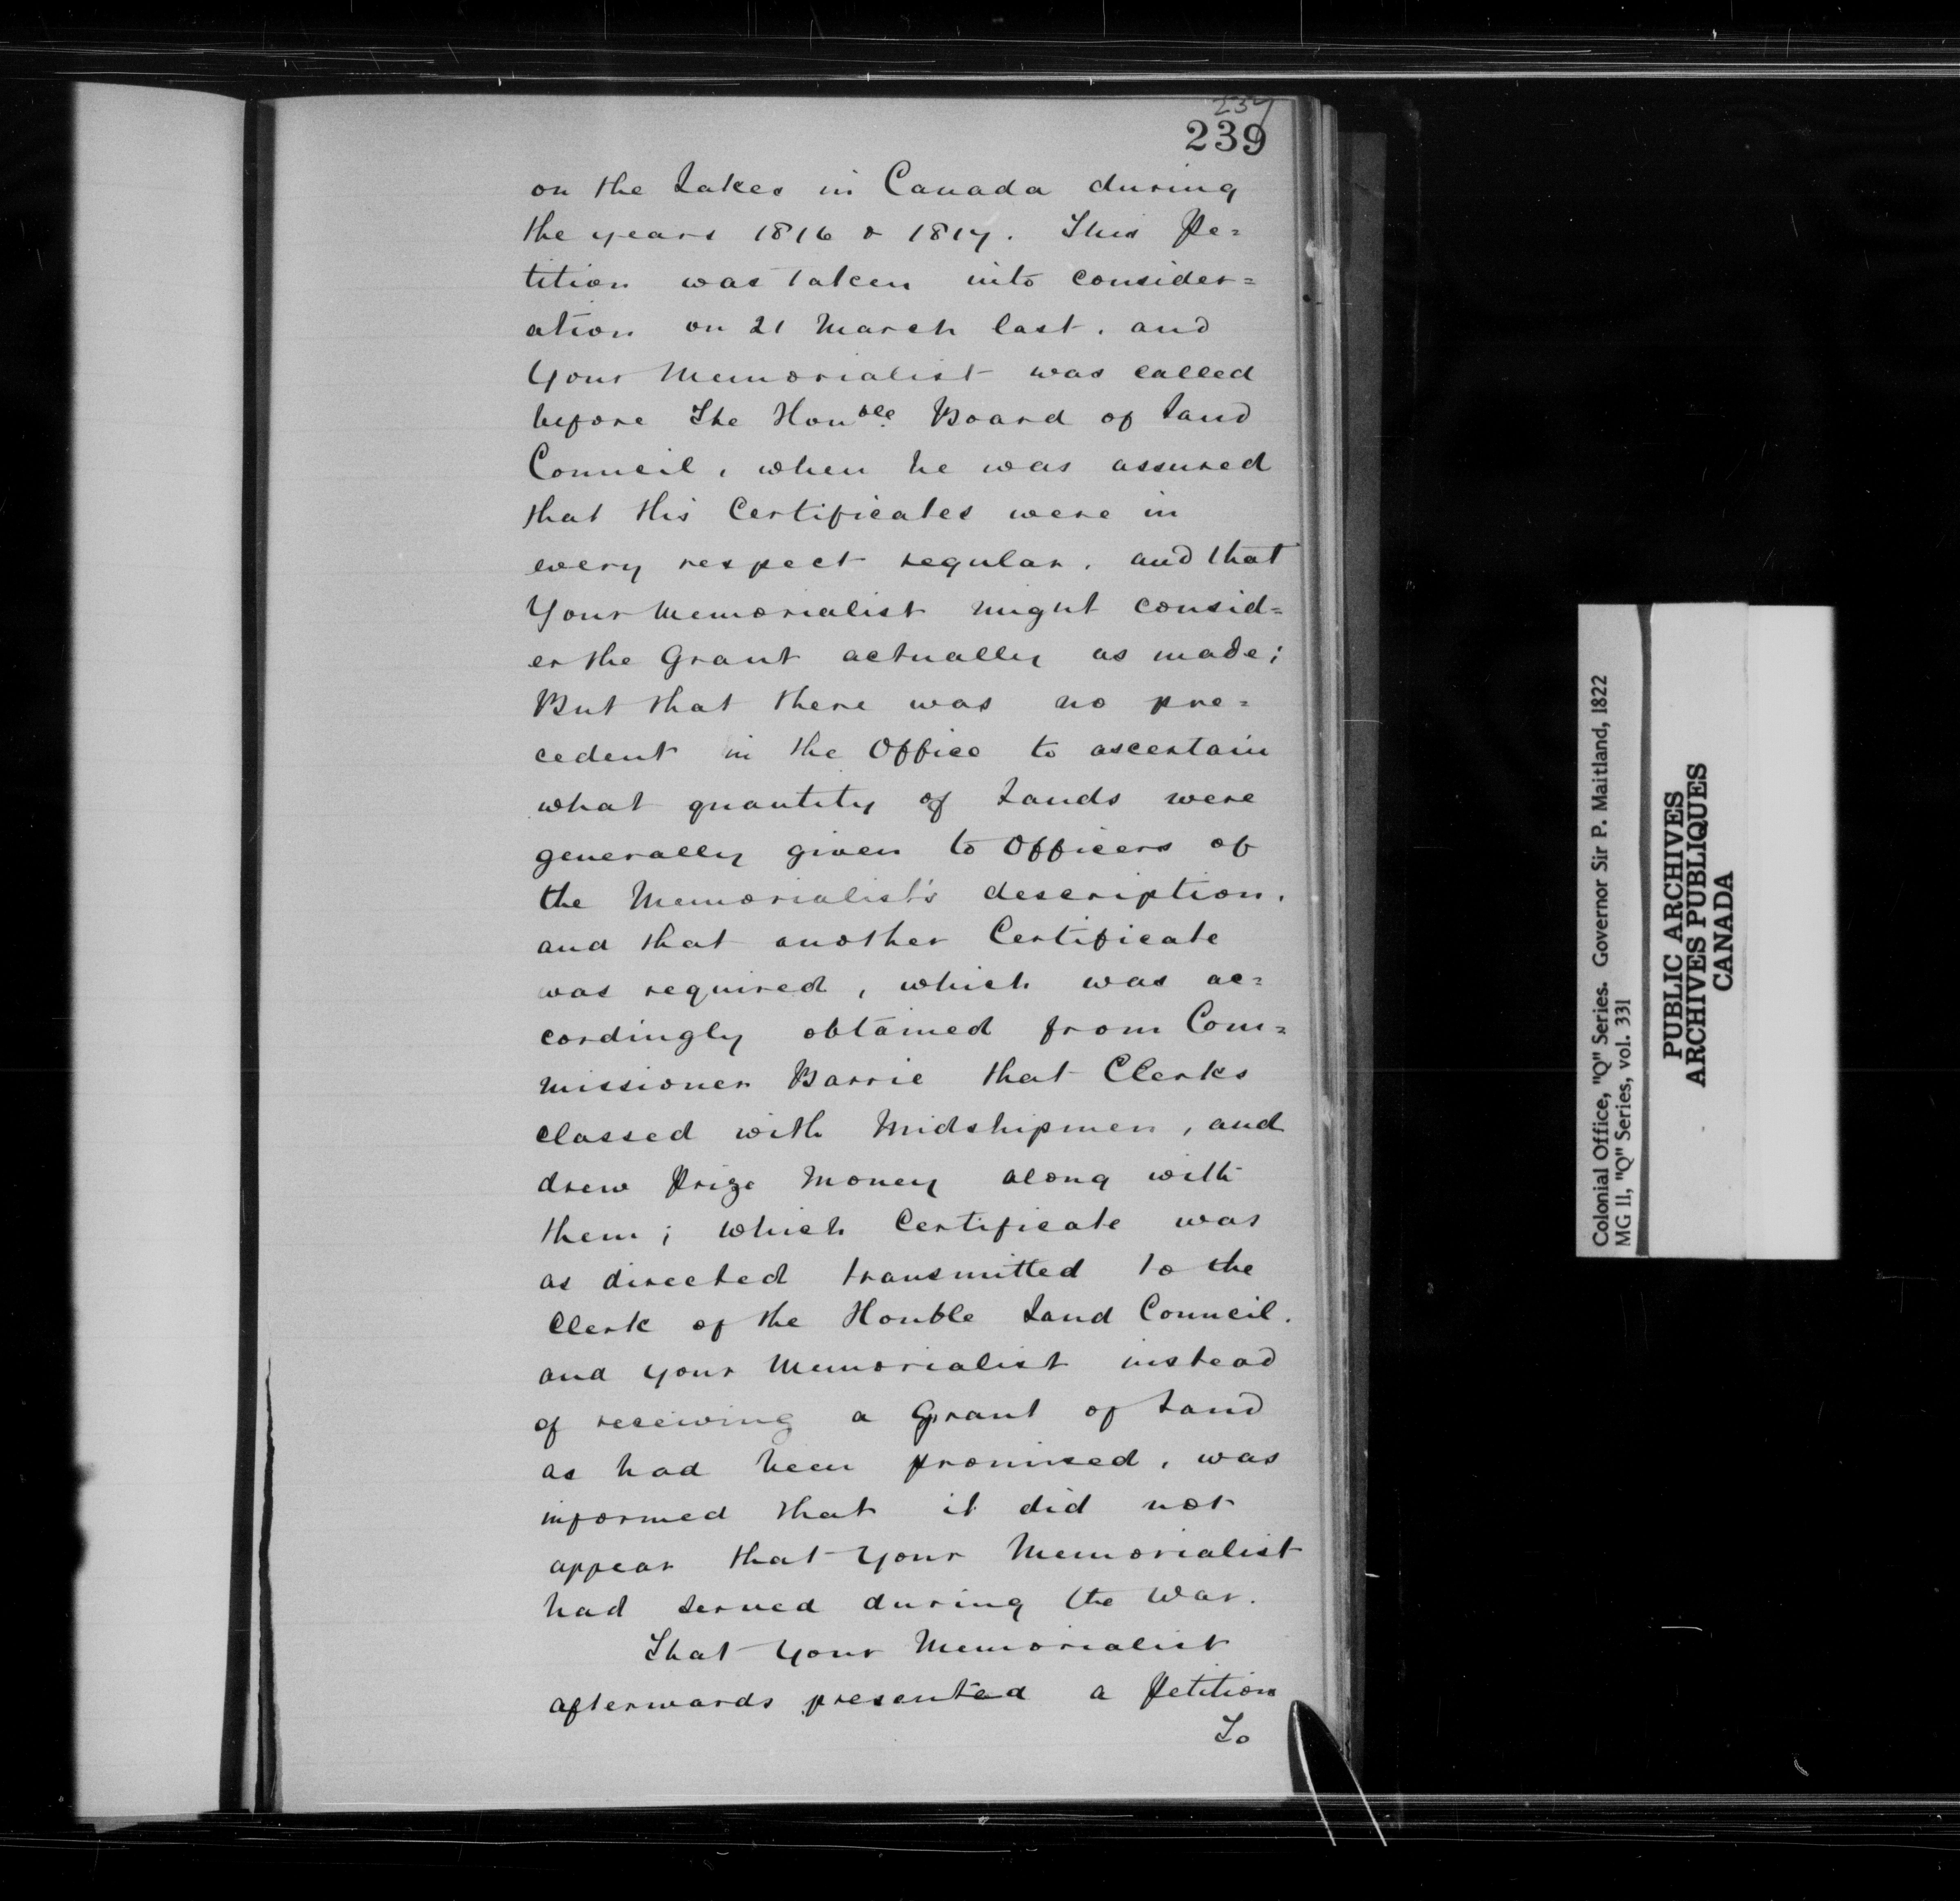 237
239
on the Lakes in Canada during
the years 1816 & 1817. This Pe=
tition was taken into consider=
ation on 21 March last. and
Your Memorialist was called
before The Honble. Board of Land
Council, when he was assured
that His Certificates were in
every respect regular, and that
Your Memorialist might consid=
er the Grant actually as made;
But that there was no pre=
cedent in the Office to ascertain
what quantity of Lands were
generally given to Officers of
the Memorialist's description.
and that another Certificate
was required, which was ac=
cordingly obtained from Com=
missioner Barrie that Clerks
classed with Midshipmen, and
drew Prize Money along with
them; which Certificate was
as directed transmitted to the
Clerk of the Honble Land Council.
and your Memorialist instead
of receiving a Grant of Land
as had been promised, was
informed that it did not
appear that Your Memorialist
had served during the War.
That Your Memorialist
afterwards presented a Petition
To
Colonial Office, "Q" Series. Governor Sir P. Maitland, 1822
MG 11, "Q" Series, vol. 331
PUBLIC ARCHIVES
ARCHIVES PUBLIQUES
CANADA